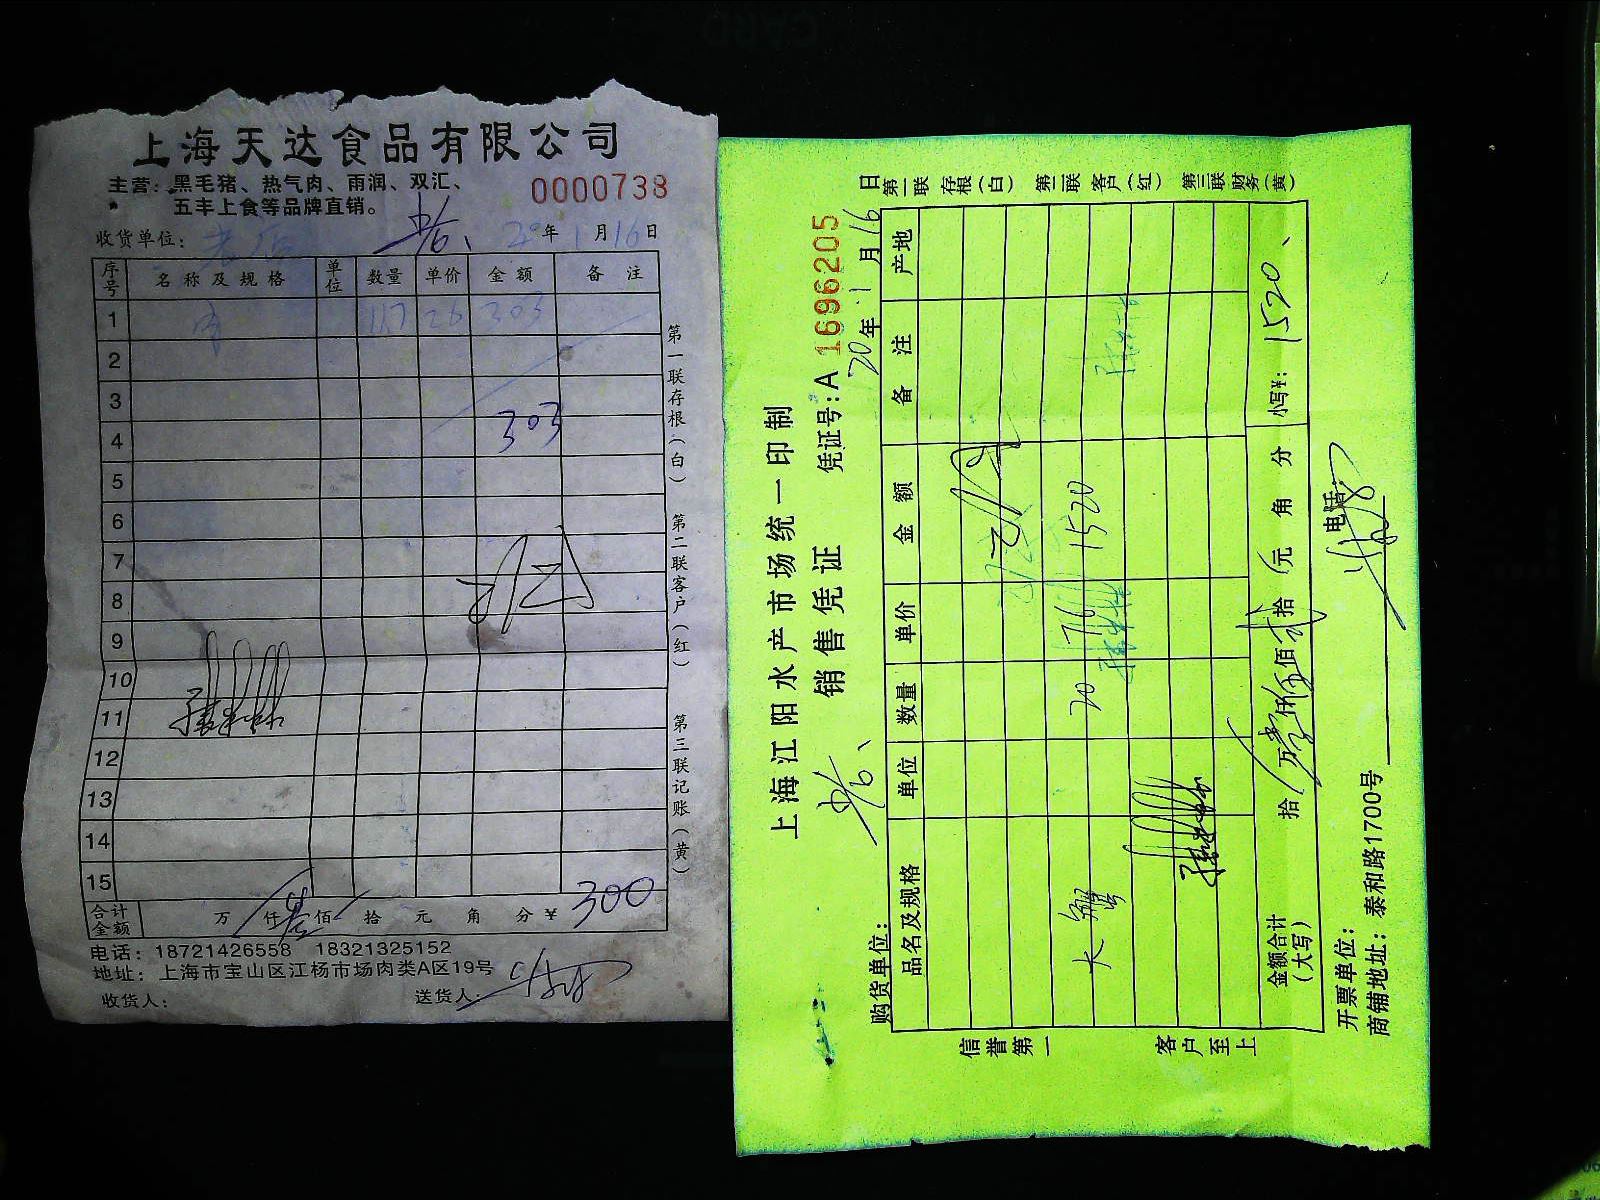 上海天达食品有限公司
主营：黑毛猪、热气肉、雨润、双汇、
五丰上食等品牌直销。
0000738
收货单位： 20年1月16日
序号 名称及规格 单位 数量 单价 金额 备注
1 肉 117 26 303
2
3
4 303
5
6
7
8
9
10
11
12
13
14
15
合计金额 万 仟 叁佰 拾 元 角 分 ¥ 300
电话：18721426558 18321325152
地址：上海市宝山区江杨市场肉类A区19号
收货人： 送货人：
第一联存根（白） 第二联客户（红） 第三联记账（黄）
上海江阳水产市场统一印制
销售凭证 凭证号：A 1696205
购货单位： 20年1月16日
品名及规格 单位 数量 单价 金额 备注 产地
大蟹 20 76 1520
金额合计（大写） 拾 万壹仟伍佰贰拾 元 角 分 小写¥：1520
开票单位： 电话：
商铺地址：泰和路1700号
信誉第一 客户至上
第一联 存根（白） 第二联 客户（红） 第三联 财务（黄）